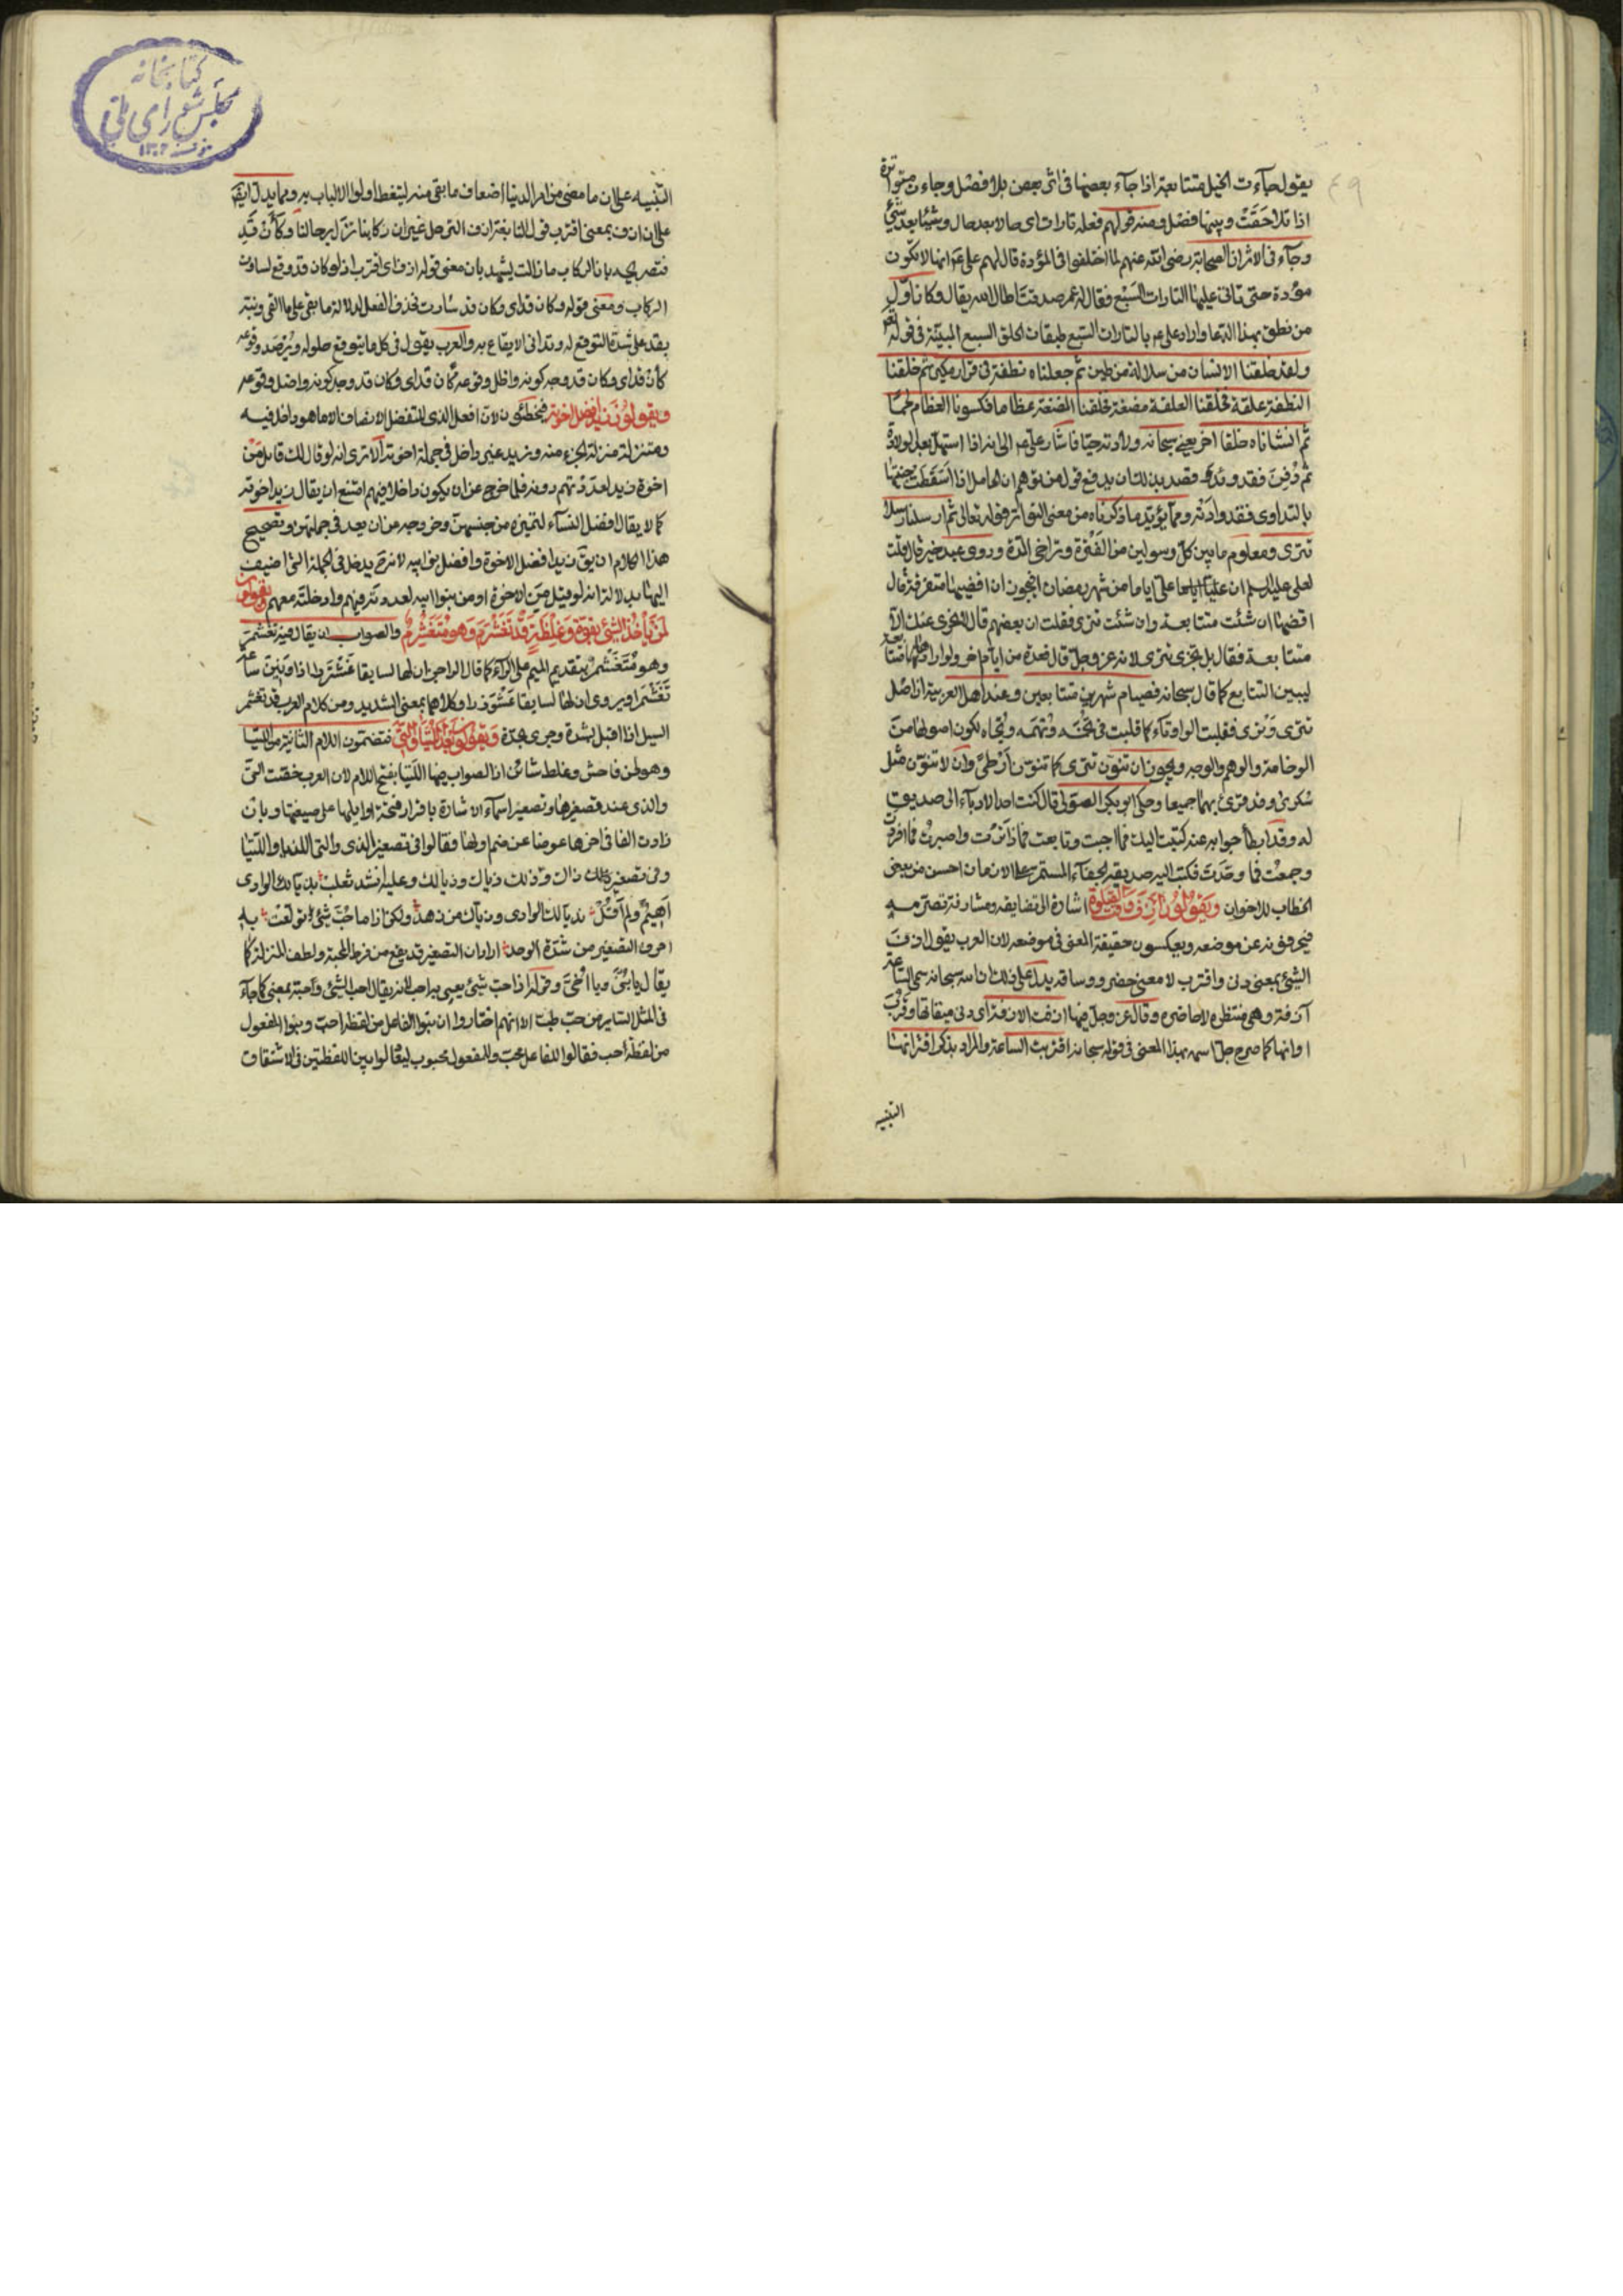 يقول جاءت الخيل متتابعة اذا جآء بعضها فى اثر بعض بلا فصل وجاءت متواترة
اذا تلاحقت وبينها فصل ومنه قولهم فعله تارات اى حالا بعد حال وشيئا بعد شئ
وجآء فى الاثر ان الصحابة رضى الله عنهم لما اختلفوا فى المؤدة قال لهم على ع م انها لا تكون
مؤدة حتى تاتى عليها التارات السبع فقال له عمر صدقت اطال الله بقاك وكان اول
من نطق بهذا الدعا واراد على ع م بالتارات السبع طبقات الخلق السبع المبينة فى قوله تعم
ولقد خلقنا الانسان من سلالة من طين ثم جعلناه نطفة فى قرار مكين ثم خلقنا
النطفة علقة فخلقنا العلقة مضغة فخلقنا المضغة عظاما فكسونا العظام لحما
ثم انشاناه خلقا اخر يعنى سبحانه ولادته حيا فاشار على ع م الى انه اذا استهل بعد الولادة
ثم دفن فقد وئد وقصد بذلك ان يدفع قول من توهم ان الحامل اذا اسقطت جنينها
بالتداوى فقد وادته ومما يؤيد ما ذكرناه من معنى التواتر قوله تعالى ثم ارسلنا رسلنا
تترى ومعلوم ما بين كل رسولين من الفترة وتراخى المدة وروى عبد خير قال قلت
لعلى عليه السلم ان على اياما من شهر رمضان ايجوز ان اقضيها متفرقة قال
اقضها ان شئت متتابعة وان شئت تترى فقلت ان بعضهم قال لا تجزى عنك الا
متتابعة فقال بل تجزى تترى لانه عز وجل قال فعدة من ايام اخر ولو ارادها متتابعة
لبين التتابع كما قال سبحانه فصيام شهرين متتابعين وعند اهل العربية ان اصل
تترى وترى فقلبت الواو تآء كما قلبت فى تخمه وتهمه وتجاه لكون اصولها من
الوخامة والوهم والوجه ويجوز ان تنون تترى كما تنون ارطى وان لا تنون مثل
سكرى وقد قرئ بهما جميعا وحكى ابو بكر الصولى قال كتب احد الادباء الى صديق
له وقد ابطأ جوابه عنه كتبت اليك فما اجبت وتابعت فما واترت واصبرت فما افردت
وجمعت فما وحدت فكتب اليه صديقه الجفآء المستمر على الازمان احسن من بعض
الخطاب للاخوان ويقولون ازف وقت الصلوة اشارة الى تضايقه ومشارفة تصرمه
فيحرفونه عن موضعه ويعكسون حقيقة المعنى فى موضعه لان العرب يقول ازف
الشئ بمعنى دنى واقترب لا بمعنى حضر ووسا قد يدل على ذلك ان الله سبحانه سمى الساعة
آزفة وهى منتظرة لا حاضره وقال عز وجل فيها ازفت الازفة اى دنى ميقاتها وقرب
اوانها كما صرح جل اسمه بهذا المعنى فى قوله سبحانه اقتربت الساعة والمراد بذكر اقترابها
التنبيه
التنبيه على ان ما مضى من امر الدنيا اضعاف ما بقى منه ليتعظ اولوا الالباب به ومما يدل ايضا
على ان ازف بمعنى اقترب قول النابغة ازف الترحل غير ان ركابنا لما تزل برحالنا وكأن قد
فتصريحه بان الركاب ما زالت يشهد بان معنى قوله ازف اى اقترب اذ لو كان قد وقع لسارت
الركاب ومعنى قوله وكان قد اى وكان قد سارت فحذف الفعل لدلالة ما بقى على ما القى ونبه
بقد على شدة التوقع له وتدانى الايقاع به والعرب يقول فى كل ما يتوقع حلوله ويرصد وقوعه
كأن قد اى وكان قد وجد كونه واظل وقوعه
ويقولون زيد افضل اخوته فيخطئون لان افعل الذى للتفضل لا يضاف الا لما هو داخل فيه
ومتنزل منزلة الجزء منه وزيد غير داخل فى جملة اخوته الا ترى انه لو قال لك قائل من
اخوة زيد لعددتهم دونه فلما خرج عن ان يكون داخلا فيهم امتنع ان يقال زيد افضل اخوته
كما لا يقال افضل النسآء لتميزه من جنسهن وخروجه من ان يعد فى جملتهن وتصحيح
هذا الكلام ان يق زيد افضل الاخوة وافضل بنى ابيه لانه ح يدخل فى الجملة التى اضيف
اليها بدلالة انه لو قيل من الاخوة او من بنوا ابيه لعددته فيهم وادخلته معهم ويقولون
لمن ياخذ الشئ بقوة وغلظة قد تغشرم وهو متغشرم والصواب ان يقال فيه تغشمر
وهو متغشمر بتقديم الميم على الرآء كما قال الراجز ان لها لسايقا عشنزرا اذا ونين ساعة
تغشمرا ويروى ان لها لسايقا عشوزنا وكلاهما بمعنى الشديد ومن كلام العرب قد تغشمر
السيل اذا اقبل بشدة وجرى بحدة ويقولون بعد اللتيا والتى فتضمون اللام الثانية من اللتيا
وهو لحن فاحش وغلط شائن اذ الصواب فيها اللتيا بفتح اللام لان العرب خصت التى
والذى عند تصغيرهما وتصغير اسمآء الاشارة باقرار فتحة اوايلها على صيغتها وبان
زادت الفا فى اخرها عوضا عن ضم اولها فقالوا فى تصغير الذى والتى اللذيا واللتيا
وفى تصغير ذاك وذلك ذياك وذيالك وعليه انشد ثعلب بذيالك الوادى
اهيم ولم اقل بذيالك الوادى وذياك من زهد ولكن اذا ما حب شئ تولعت به
احرف التصغير من شدة الوجد اراد ان التصغير قد يقع من فرط المحبة ولطف المنزلة كما
يقال يا بنى ويا اخى وقوله اذا حب شئ يعنى به احب لانه يقال احب الشئ وحبه بمعنى كما جآء
فى المثل الساير من حب طب الا انهم اختاروا ان بنوا الفاعل من لفظة احب وبنوا المفعول
من لفظة حب فقالوا للفاعل محب وللمفعول محبوب ليعادلوا بين اللفظتين فى الاشتقاق
كتابخانه
مجلس شوراى ملى